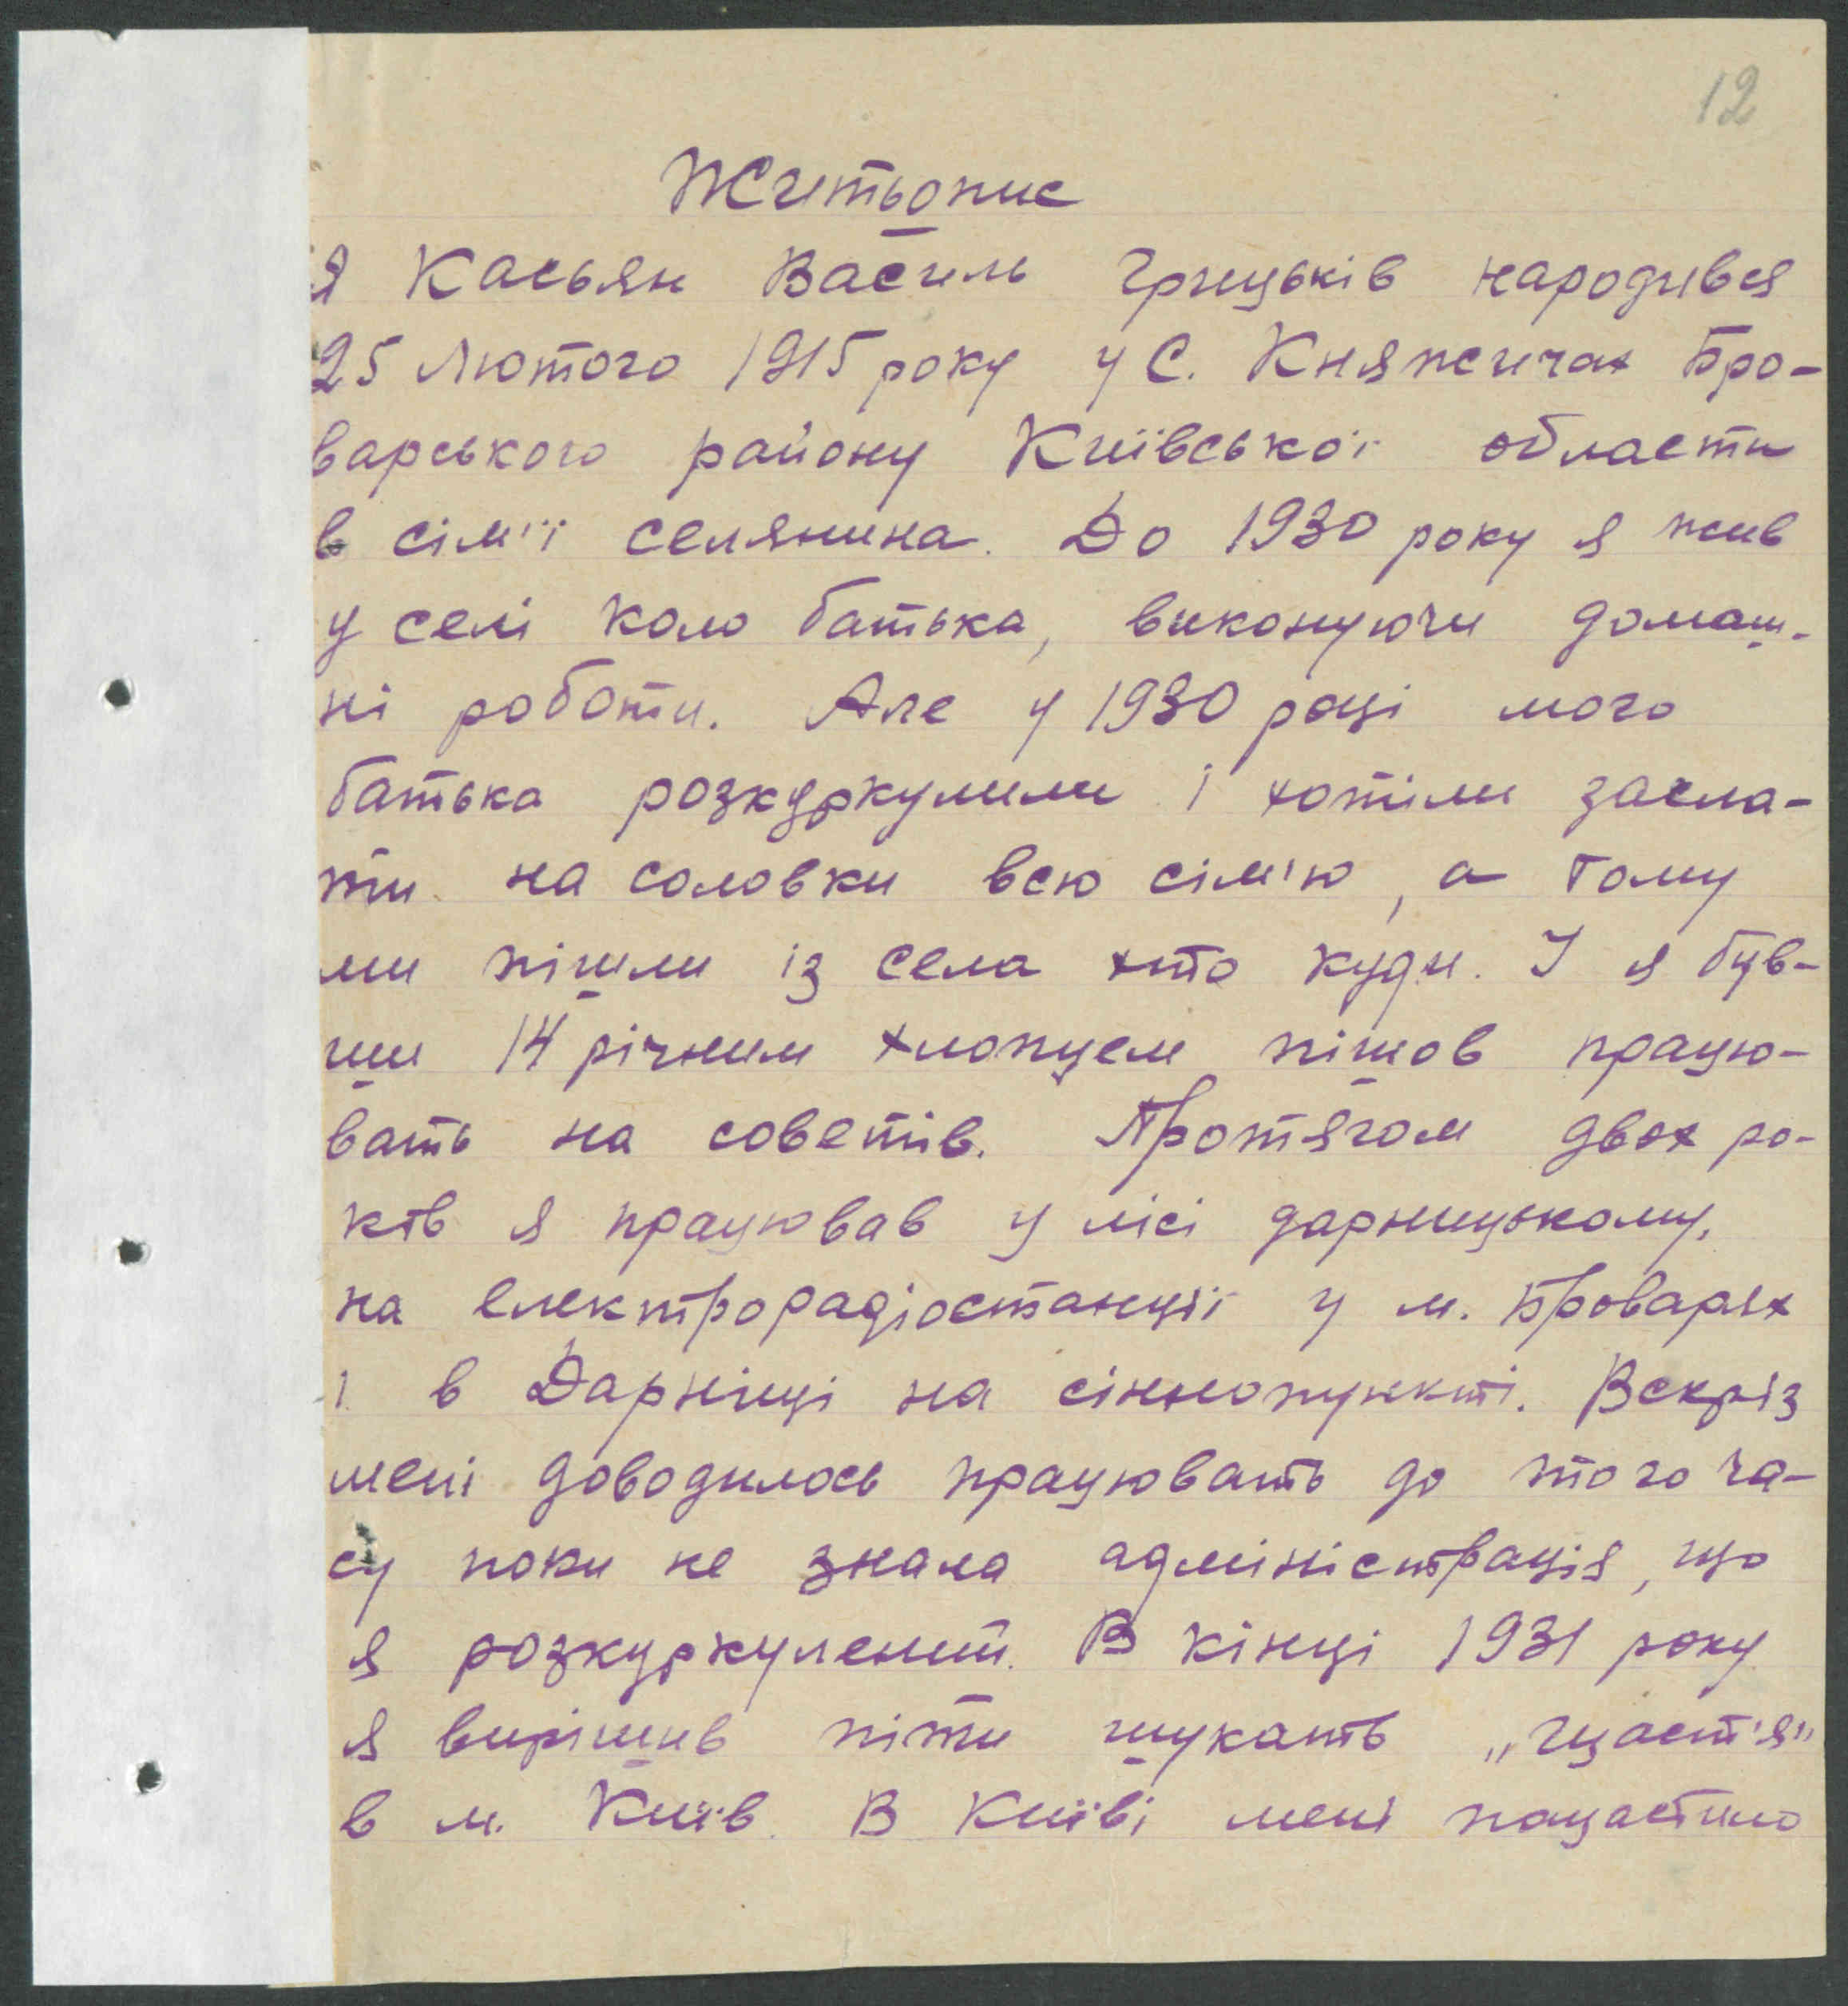 12
Житьопис
Я Касьян Василь Грицьків народився
25 Лютого 1915 року у С. Княжичах Бро-
варського району Київської области
в сім'ї селянина. До 1930 року я жив
у селі коло батька, виконуючи домаш-
ні роботи. Але у 1930 році мого
батька розкуркулили і хотіли засла-
ти на соловки всю сім'ю, а тому
ми пішли із села хто куди. І я був-
ши 14 річним хлопцем пішов працю-
вать на советів. Протягом двох ро-
ків я працював у лісі дарницькому,
на електрорадіостанції у м. Броварях
і в Дарніці на сіннопункті. Вскрізь
мені доводилось працювать до того ча-
су поки не знала адміністрація, що
я розкуркулений. В кінці 1931 року
я вирішив піти шукать „щаст'я"
в м. Київ. В Київі мені пощастило